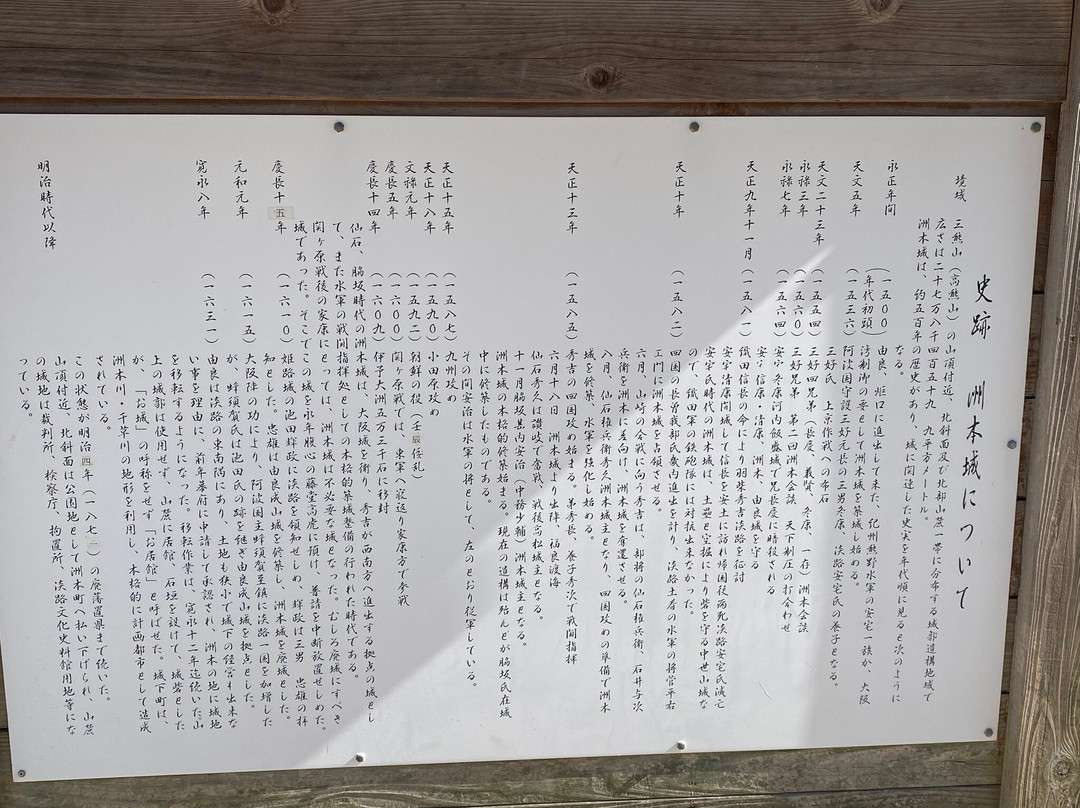 史跡 洲本城について
境域 三熊山(高熊山)の山頂付近、北斜面及び北部山麓一帯に分布する城郭遺構地域で
広さは二十七万八千四百五十九、九平方メートル。
洲本城は、約五百年の歴史があり、城に関連した史実を年代順に見ると次のように
なる。
永正年間(年代初頭)由良、炬口に進出して来た、紀州熊野水軍の安宅一族が、大阪
湾制御の要として洲本城を築城し始める。
天文五年(一五三六)阿波国守護三好元長の三男冬康、淡路安宅氏の養子となる。
三好氏 上京作戦への布石
天文二十三年(一五五四)三好四兄弟(長慶、義賢、冬康、一存)洲本会談
永禄三年(一五六〇)三好兄弟 第二回洲本会談 天下制圧の打合わせ
永禄七年(一五六四)安宅 冬康河内飯盛城で兄長慶に暗殺される
安宅 信康・清康、洲本、由良城を守る
天正九年十一月(一五八一)織田信長の命により羽柴秀吉淡路を征討
安宅清康開城して信長を安土に訪れ帰国後病死淡路安宅氏滅亡
安宅氏時代の洲本城は、土塁と空掘により砦を守る中世山城な
ので、織田軍の鉄砲隊には対抗出来なかった。
天正十年(一五八二)四国の長曽我部氏畿内進出を計り、淡路土着の水軍の将菅平右
エ門に洲本城を占領させる。
六月、山崎の合戦に向う秀吉は、部将の仙石権兵衛、石井与次
兵衛を洲本に差向け、洲本城を奪還させる。
八月、仙石権兵衛秀久洲本城主となり、四国攻めの準備で洲本
城を修築、水軍を強化し始める。
天正十三年(一五八五)秀吉の四国攻め始まる。弟秀長、養子秀次で戦闘指揮
六月十八日 洲本城より出陣、福良渡海
仙石秀久は讃岐で奮戦、戦後高松城主となる。
十一月脇坂甚内安治(中務少輔)洲本城主となる。
洲本城の本格的修築始まる。現在の遺構は殆んどが脇坂氏在城
中に修築したものである。
その間安治は水軍の将として、左のとおり従軍している。
天正十五年(一五八七)九州攻め
天正十八年(一五九〇)小田原攻め
文禄元年(一五九二)朝鮮の役(壬辰倭乱)
慶長五年(一六〇〇)関ヶ原戦では、東軍へ寝返り家康方で参戦
慶長十四年(一六〇九)伊予大洲五万三千石に移封
仙石、脇坂時代の洲本城は、大阪城を衛り、秀吉が西南方へ進出する拠点の城とし
て、また水軍の戦闘指揮処としての本格的築城整備の行われた時代である。
関ヶ原戦後の家康にとっては、洲本城は不必要な城となった。むしろ廃城にすべき
城であった。そこでこの城を永年腹心の藤堂高虎に預け、普請を中断放置せしめた。
慶長十五年(一六一〇)姫路城の池田輝政に淡路を領知せしめ、輝政は三男 忠雄の拝
知とした。忠雄は由良成山城を修築し、洲本城を廃城とした。
元和元年(一六一五)大阪陣の功により、阿波国主蜂須賀至鎮に淡路一国を加増した
が、蜂須賀氏は池田氏の跡を継ぎ由良成山城を拠点とした。
由良は淡路の東南隅にあり、土地も狭小で城下の経営も出来な
寛永八年(一六三一)い事を理由に、前年幕府に申請して承認され、洲本の地に城地
を移転するようになった。移転作業は、寛永十二年迄続いた。山
上の城郭は使用せず、山麓に居館、石垣を設けて、城砦とした
が、「お城」の呼称をせず、「お居館」と呼ばせた。城下町は、
洲本川・千草川の地形を利用し、本格的に計画都市として造成
されている。
明治時代以降 この状態が明治四年(一八七一)の廃藩置県まで続いた。
山頂付近、北斜面は公園地として洲本町へ払い下げられ、山麓
の城地は裁判所、検察庁、拘置所、淡路文化史料館用地等にな
っている。